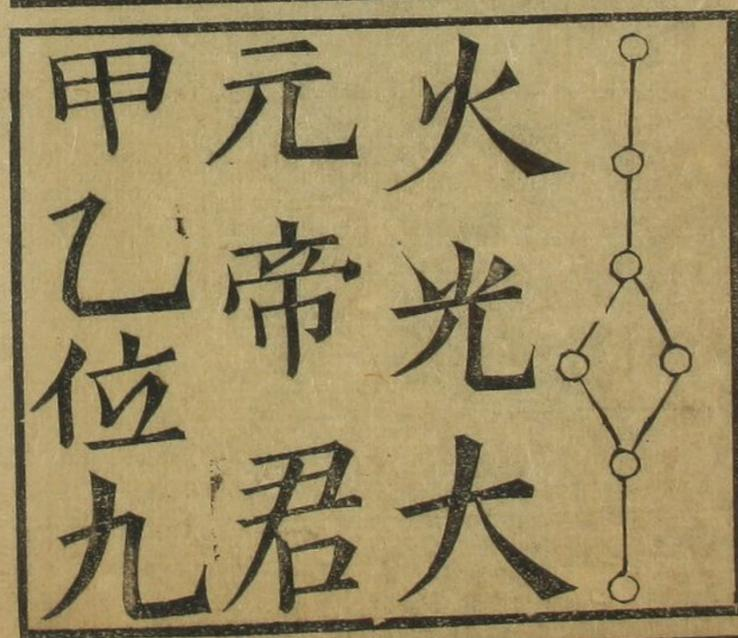 火光大
元帝君
甲乙位九